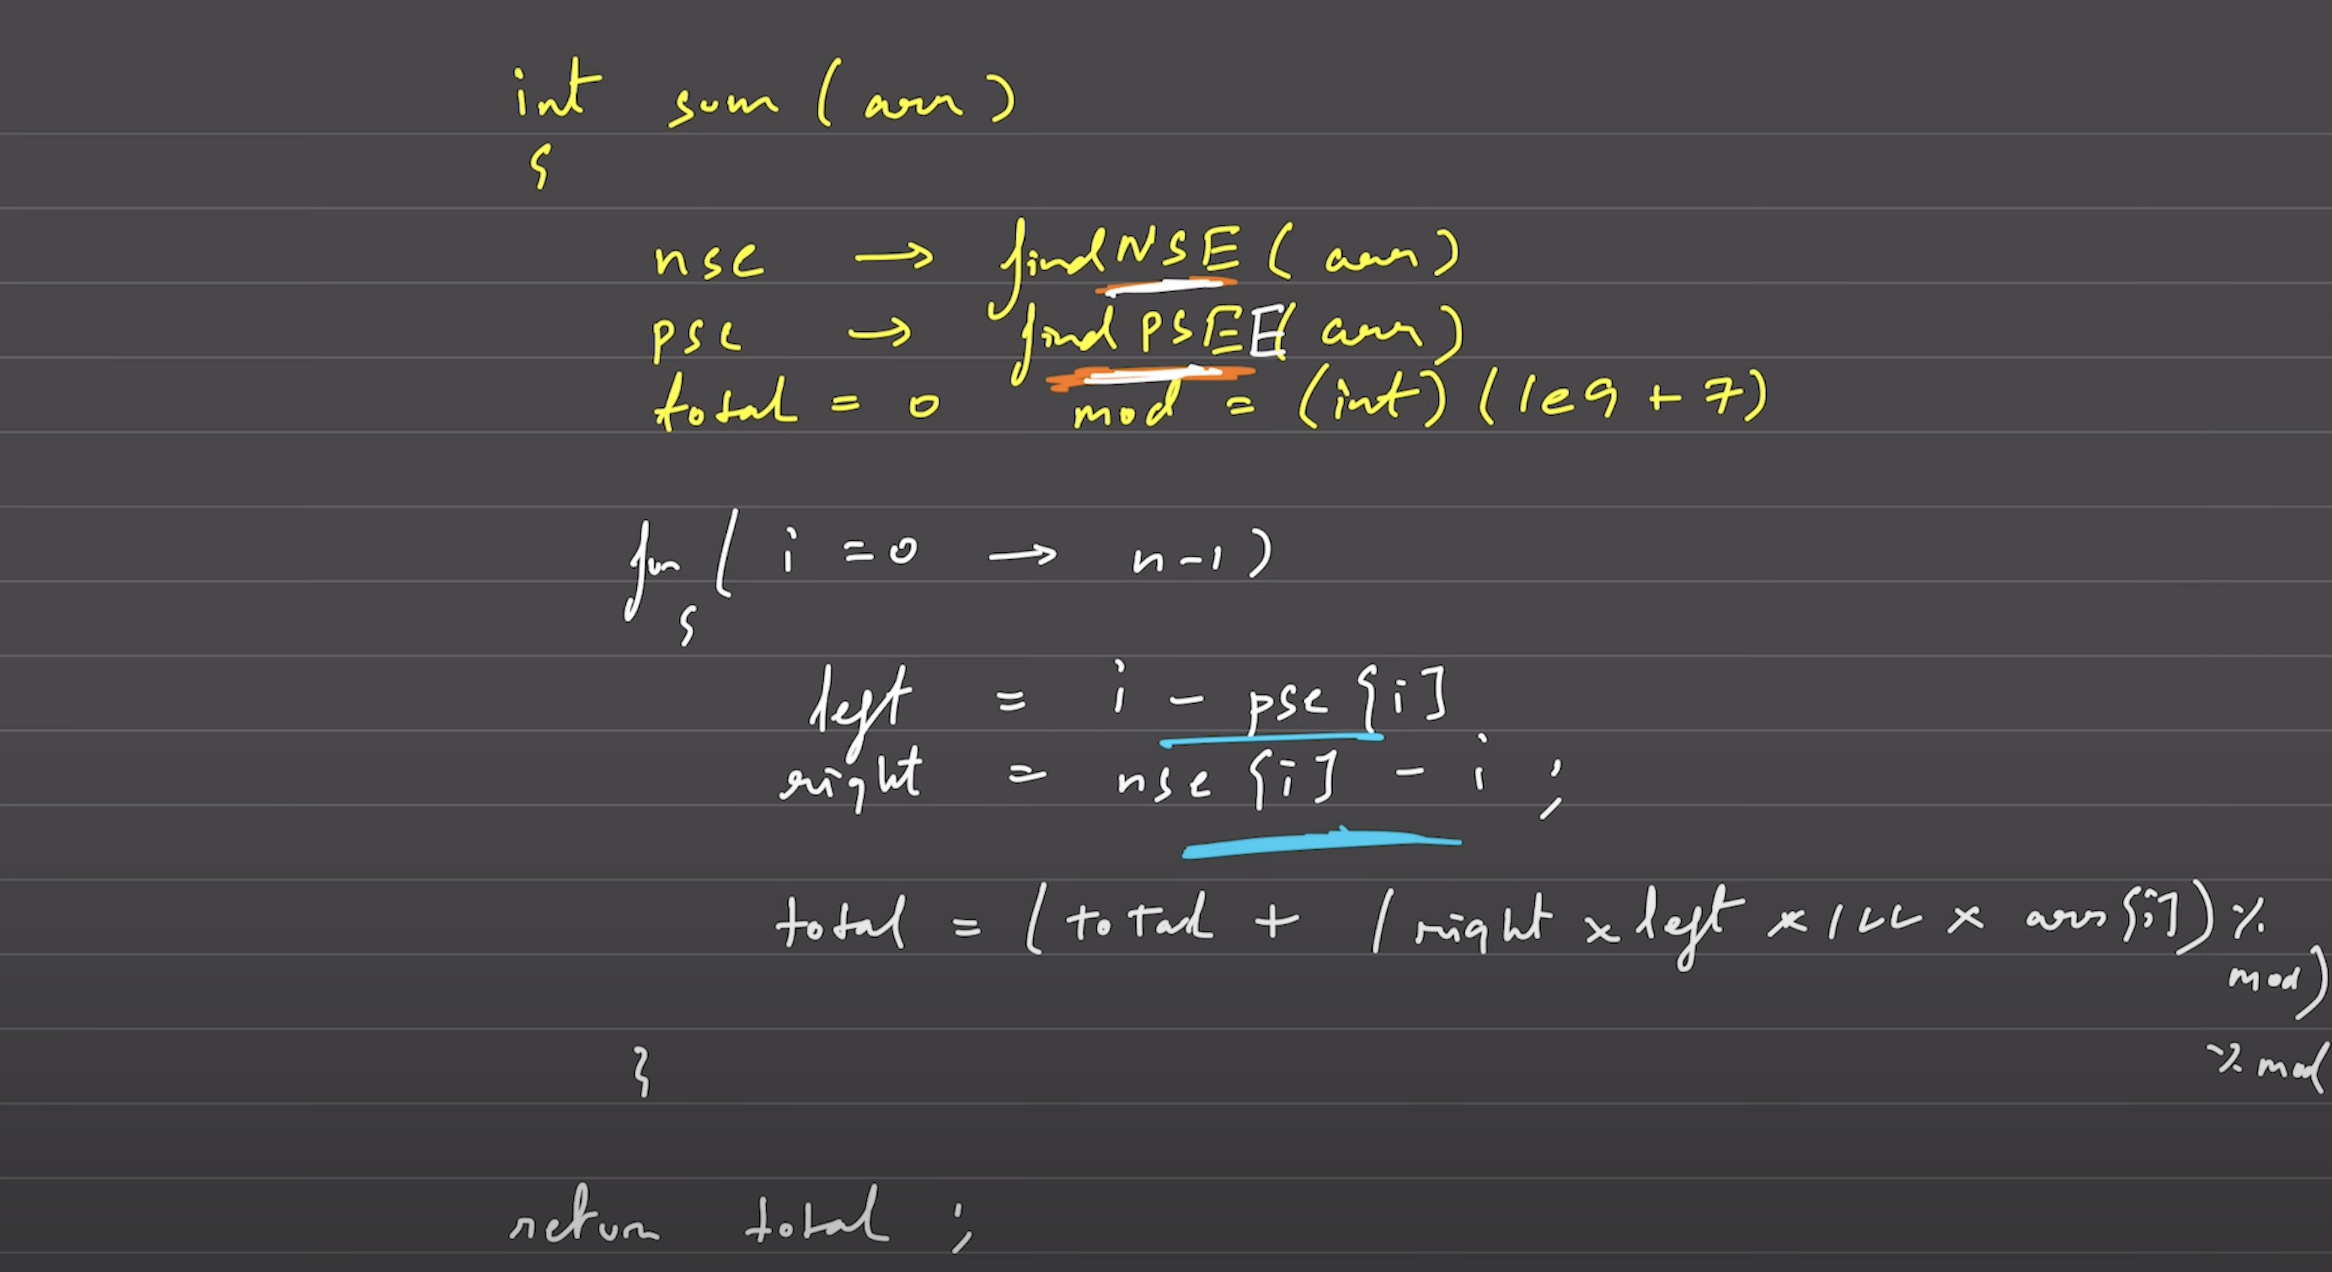 int sum (arr)
{
nse → findNSE (arr)
pse → findPSEE (arr)
total = 0 mod = (int) (1e9 + 7)
for ( i = 0 → n-1 )
{
left = i - pse[i]
right = nse[i] - i ;
total = ( total + ( right x left * 1LL x arr[i]) %
mod)
% mod
}
return total ;